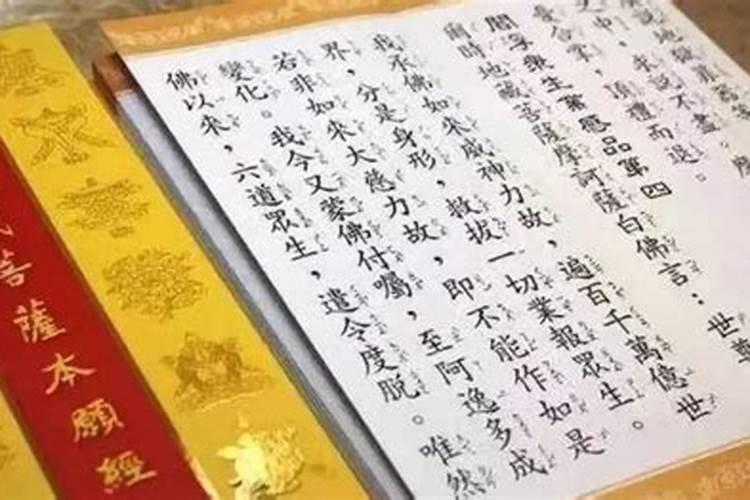 說地獄罪
中，求說不盡。摩
憂合掌，頂禮而退。
閻浮眾生業感品第四
爾時地藏菩薩摩訶薩白佛言：世尊
我承佛如來威神力故，遍百千萬億世
界，分是身形，救拔一切業報眾生。
若非如來大慈力故，即不能作如是
變化。我今又蒙佛付囑，至阿逸多成
佛以來，六道眾生，遣令度脫。唯然
菩薩本願經